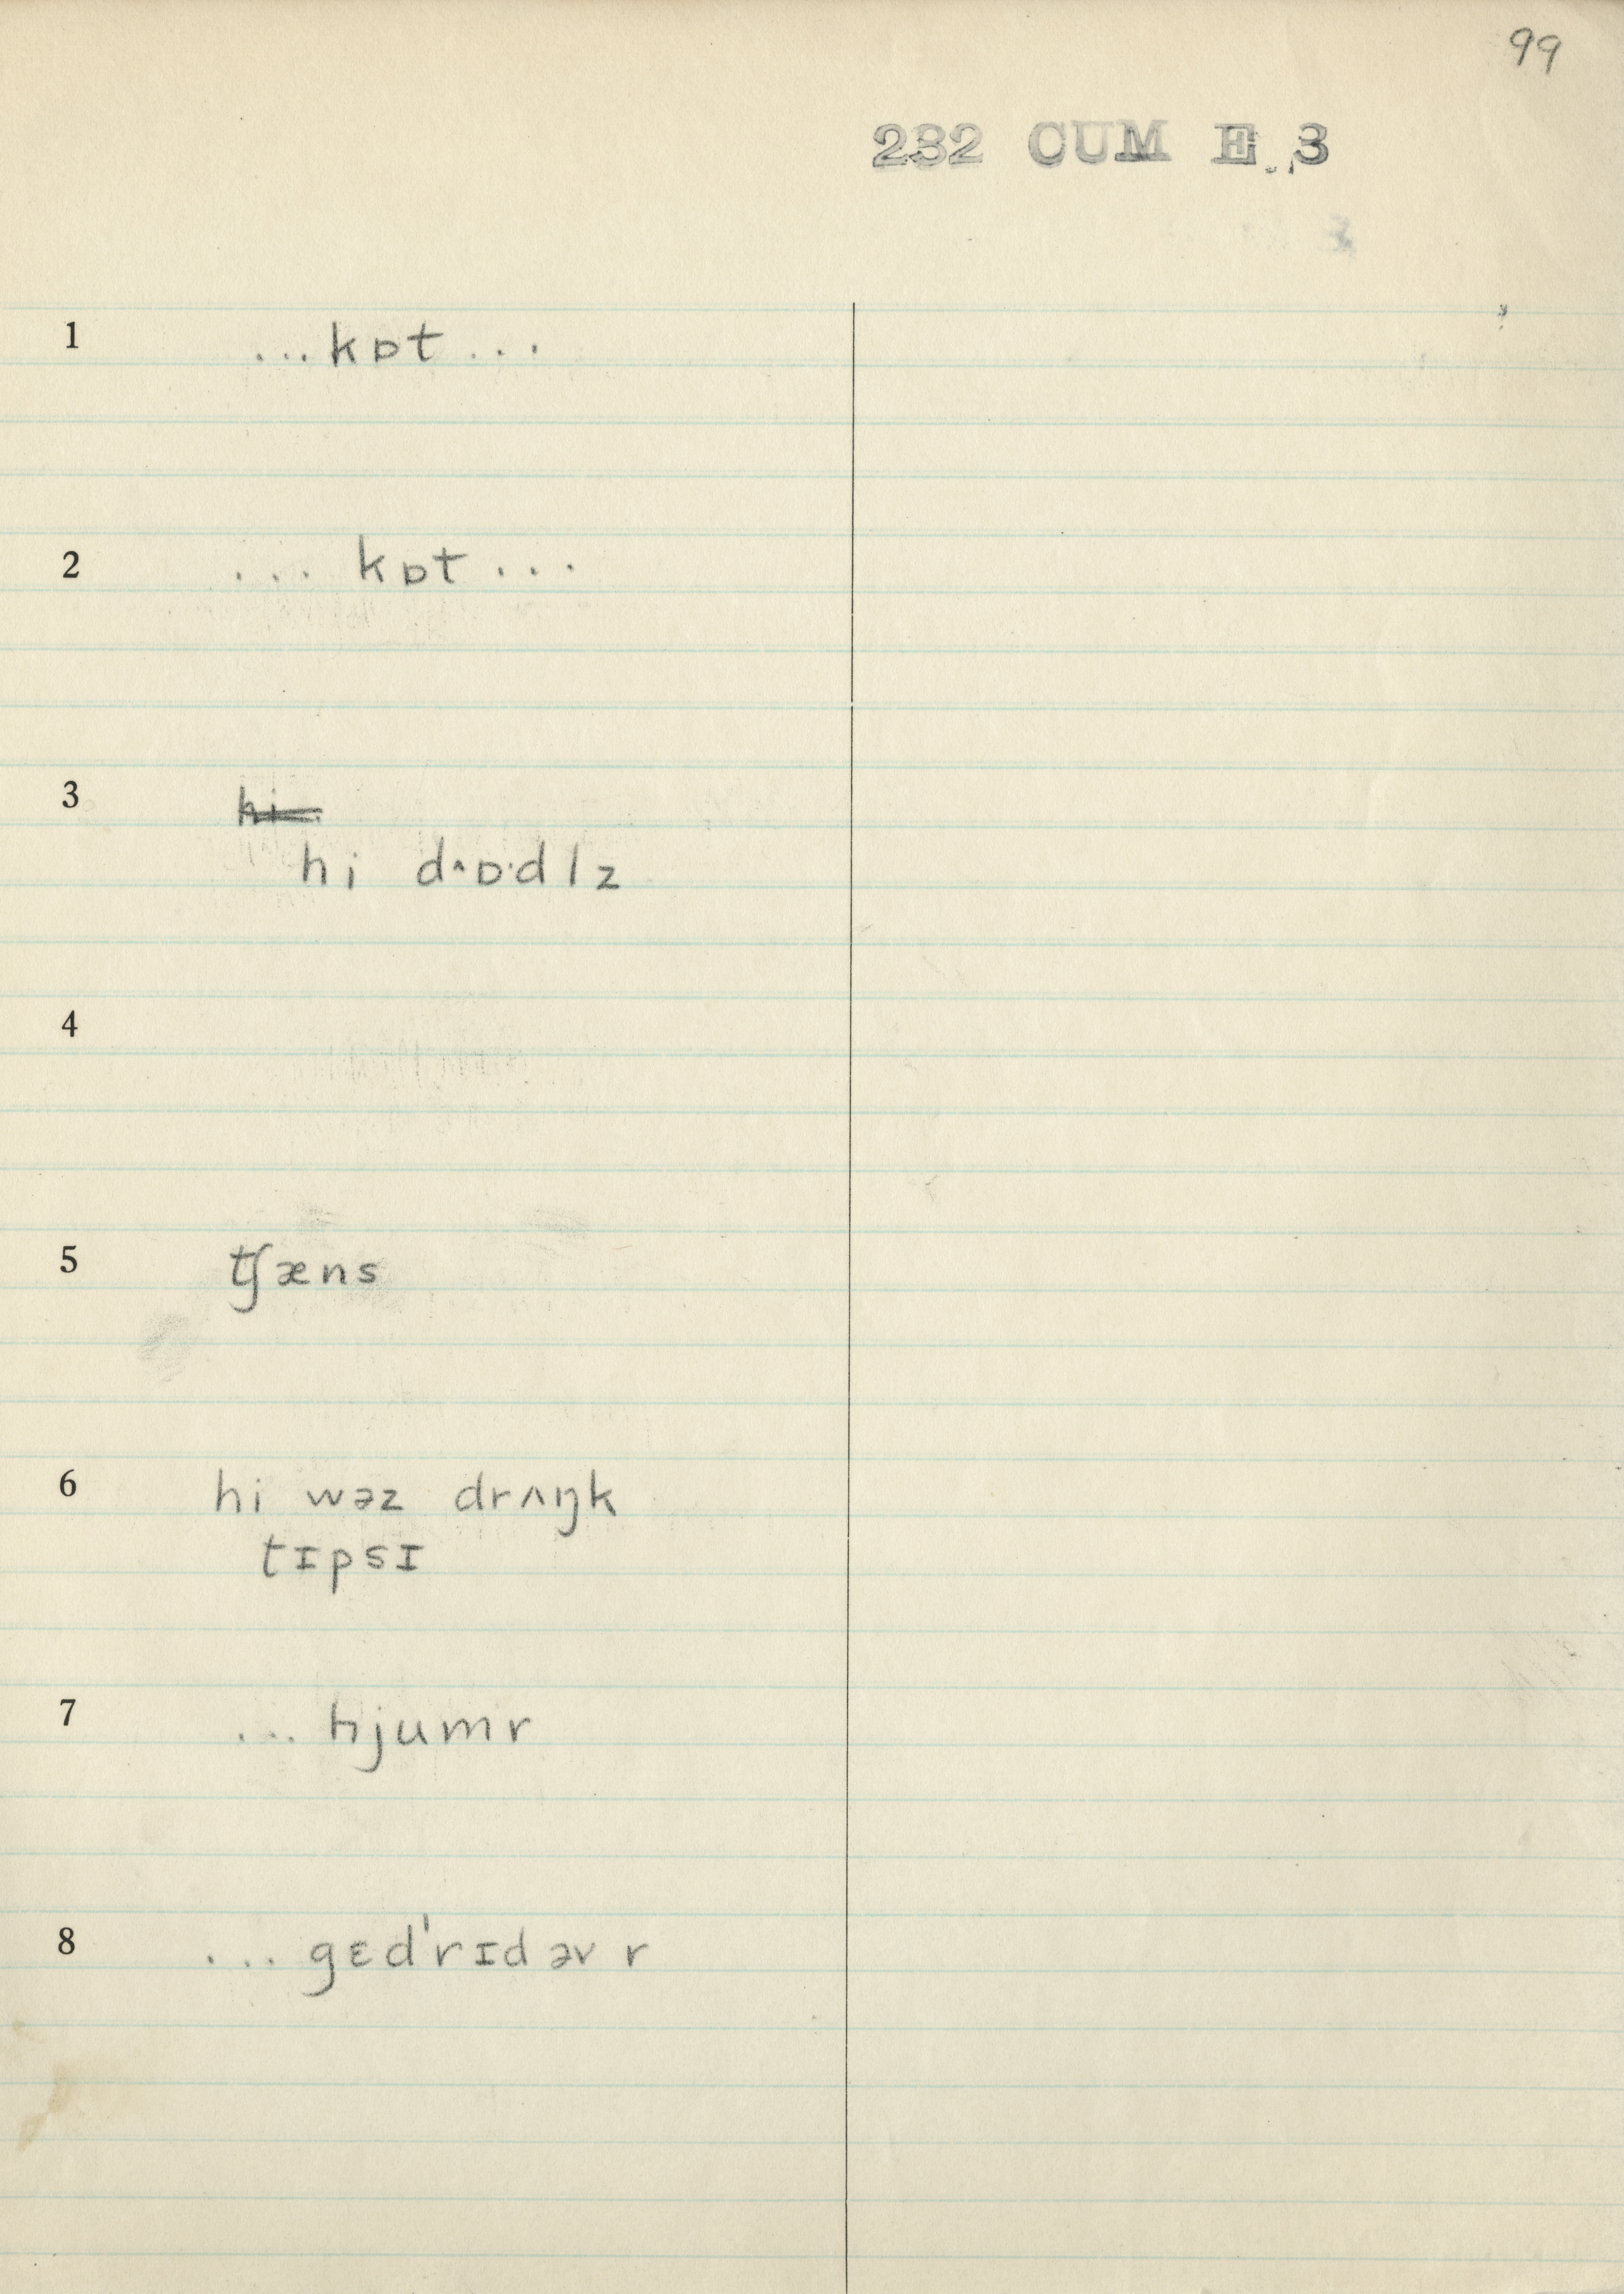 99
232 CUM E. 3
1 ...kɒt...
2 ... kɒt...
3 hi
hi dˑɒˑdlz
4
5 ʧæns
6 hi wəz drʌŋk
tɪpsɪ
7 ... hjumr
8 ... gɛdˈrɪd əv r